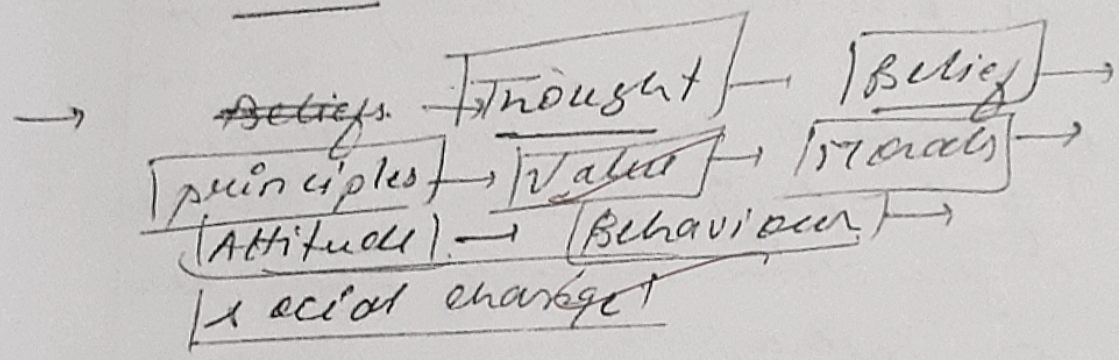 → Beliefs. → Thought → Belief →
principles → Value → Morals →
Attitude → Behaviour →
social change